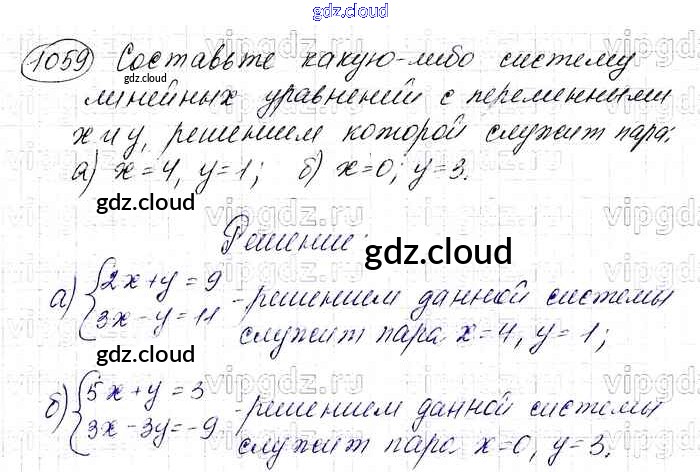 gdz.cloud
1059 Составьте какую-либо систему
gdz.cloud
линейных уравнений с переменными
x и y, решением которой служит пара:
а) x=4, y=1; б) x=0; y=3.
gdz.cloud
Решение:
gdz.cloud
а) {2x+y=9
3x-y=11 -решением данной системы
служит пара x=4, y=1;
gdz.cloud
б) {5x+y=3
3x-3y=-9 -решением данной системы
служит пара x=0, y=3.